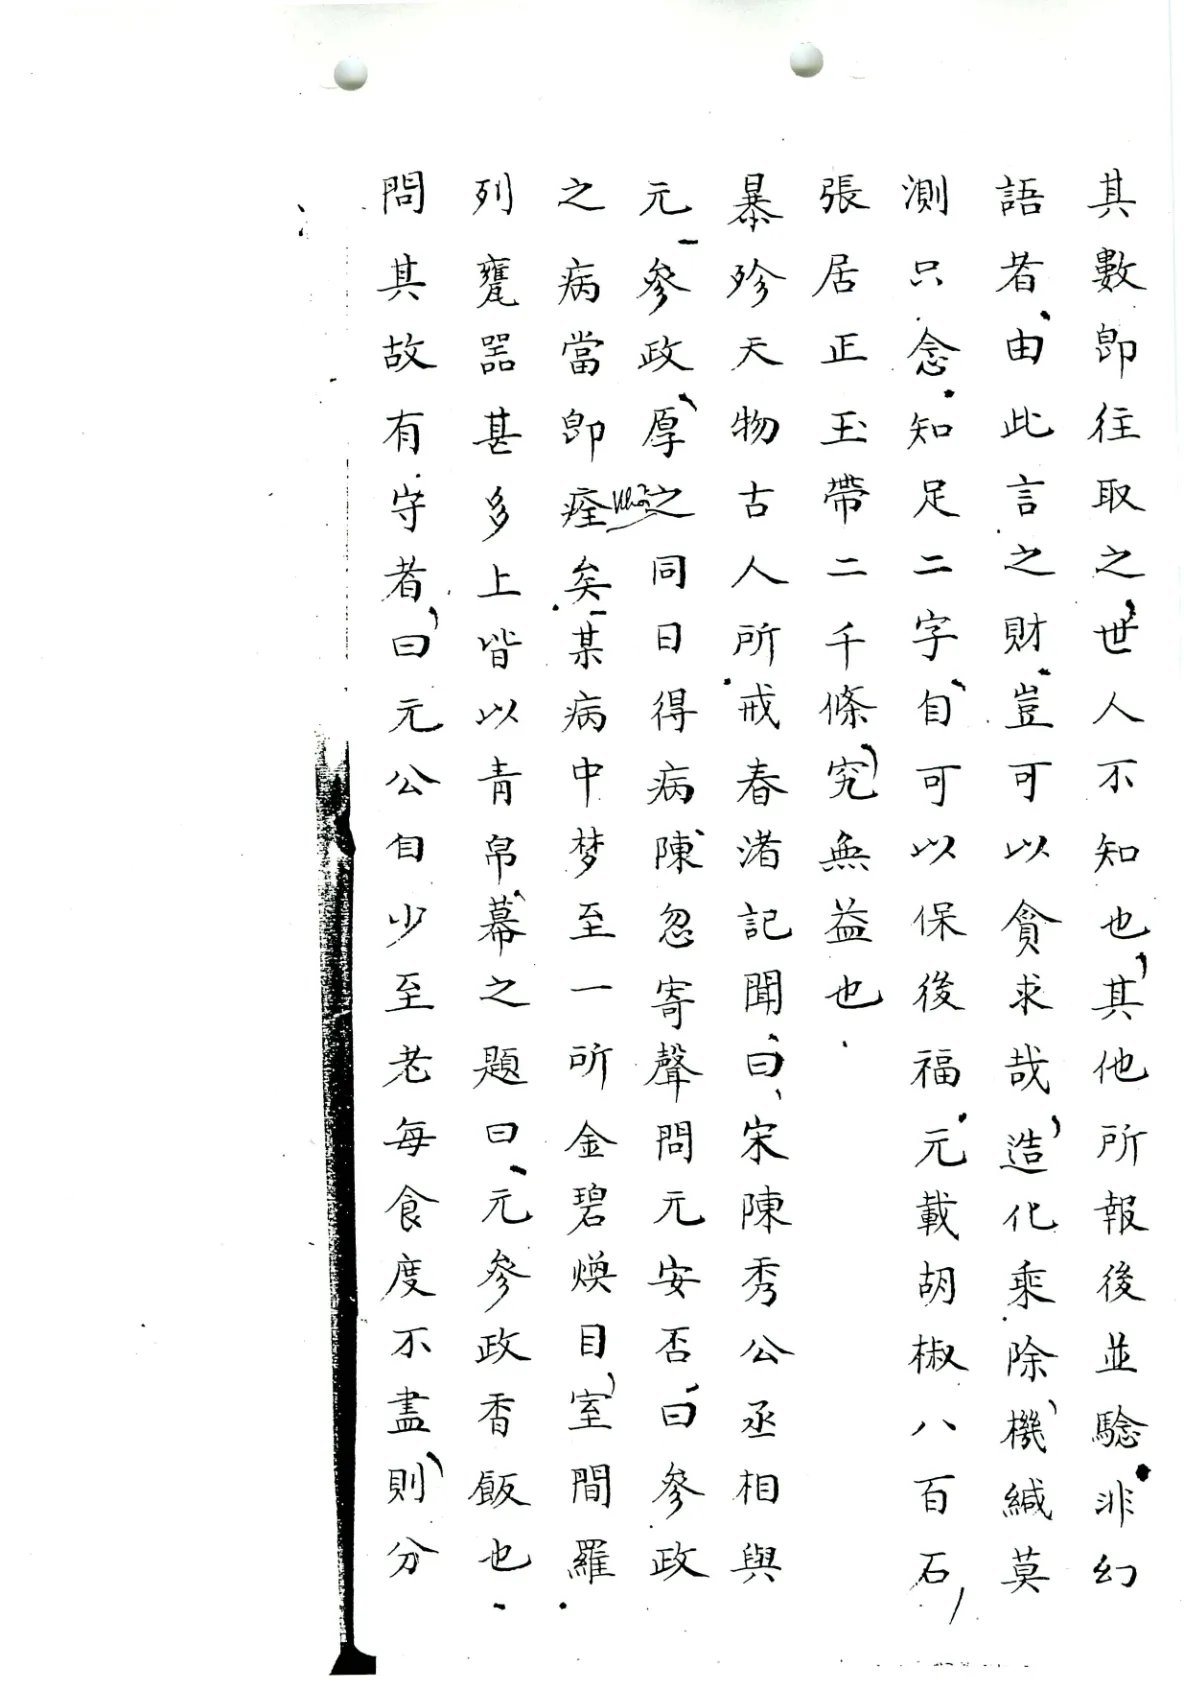 其數卽往取之世人不知也其他所報後並驗非幻
語者由此言之財豈可以貪求哉造化乘除機緘莫
測只念知足二字自可以保後福元載胡椒八百石
張居正玉帶二千條究無益也
暴殄天物古人所戒春渚記聞曰宋陳秀公丞相與
元參政厚之同日得病陳忽寄聲問元安否曰參政
之病當卽痊矣某病中梦至一所金碧煥目室間羅
列甕噐甚多上皆以青帛幕之題曰元參政香飯也
問其故有守者曰元公自少至老每食度不盡則分